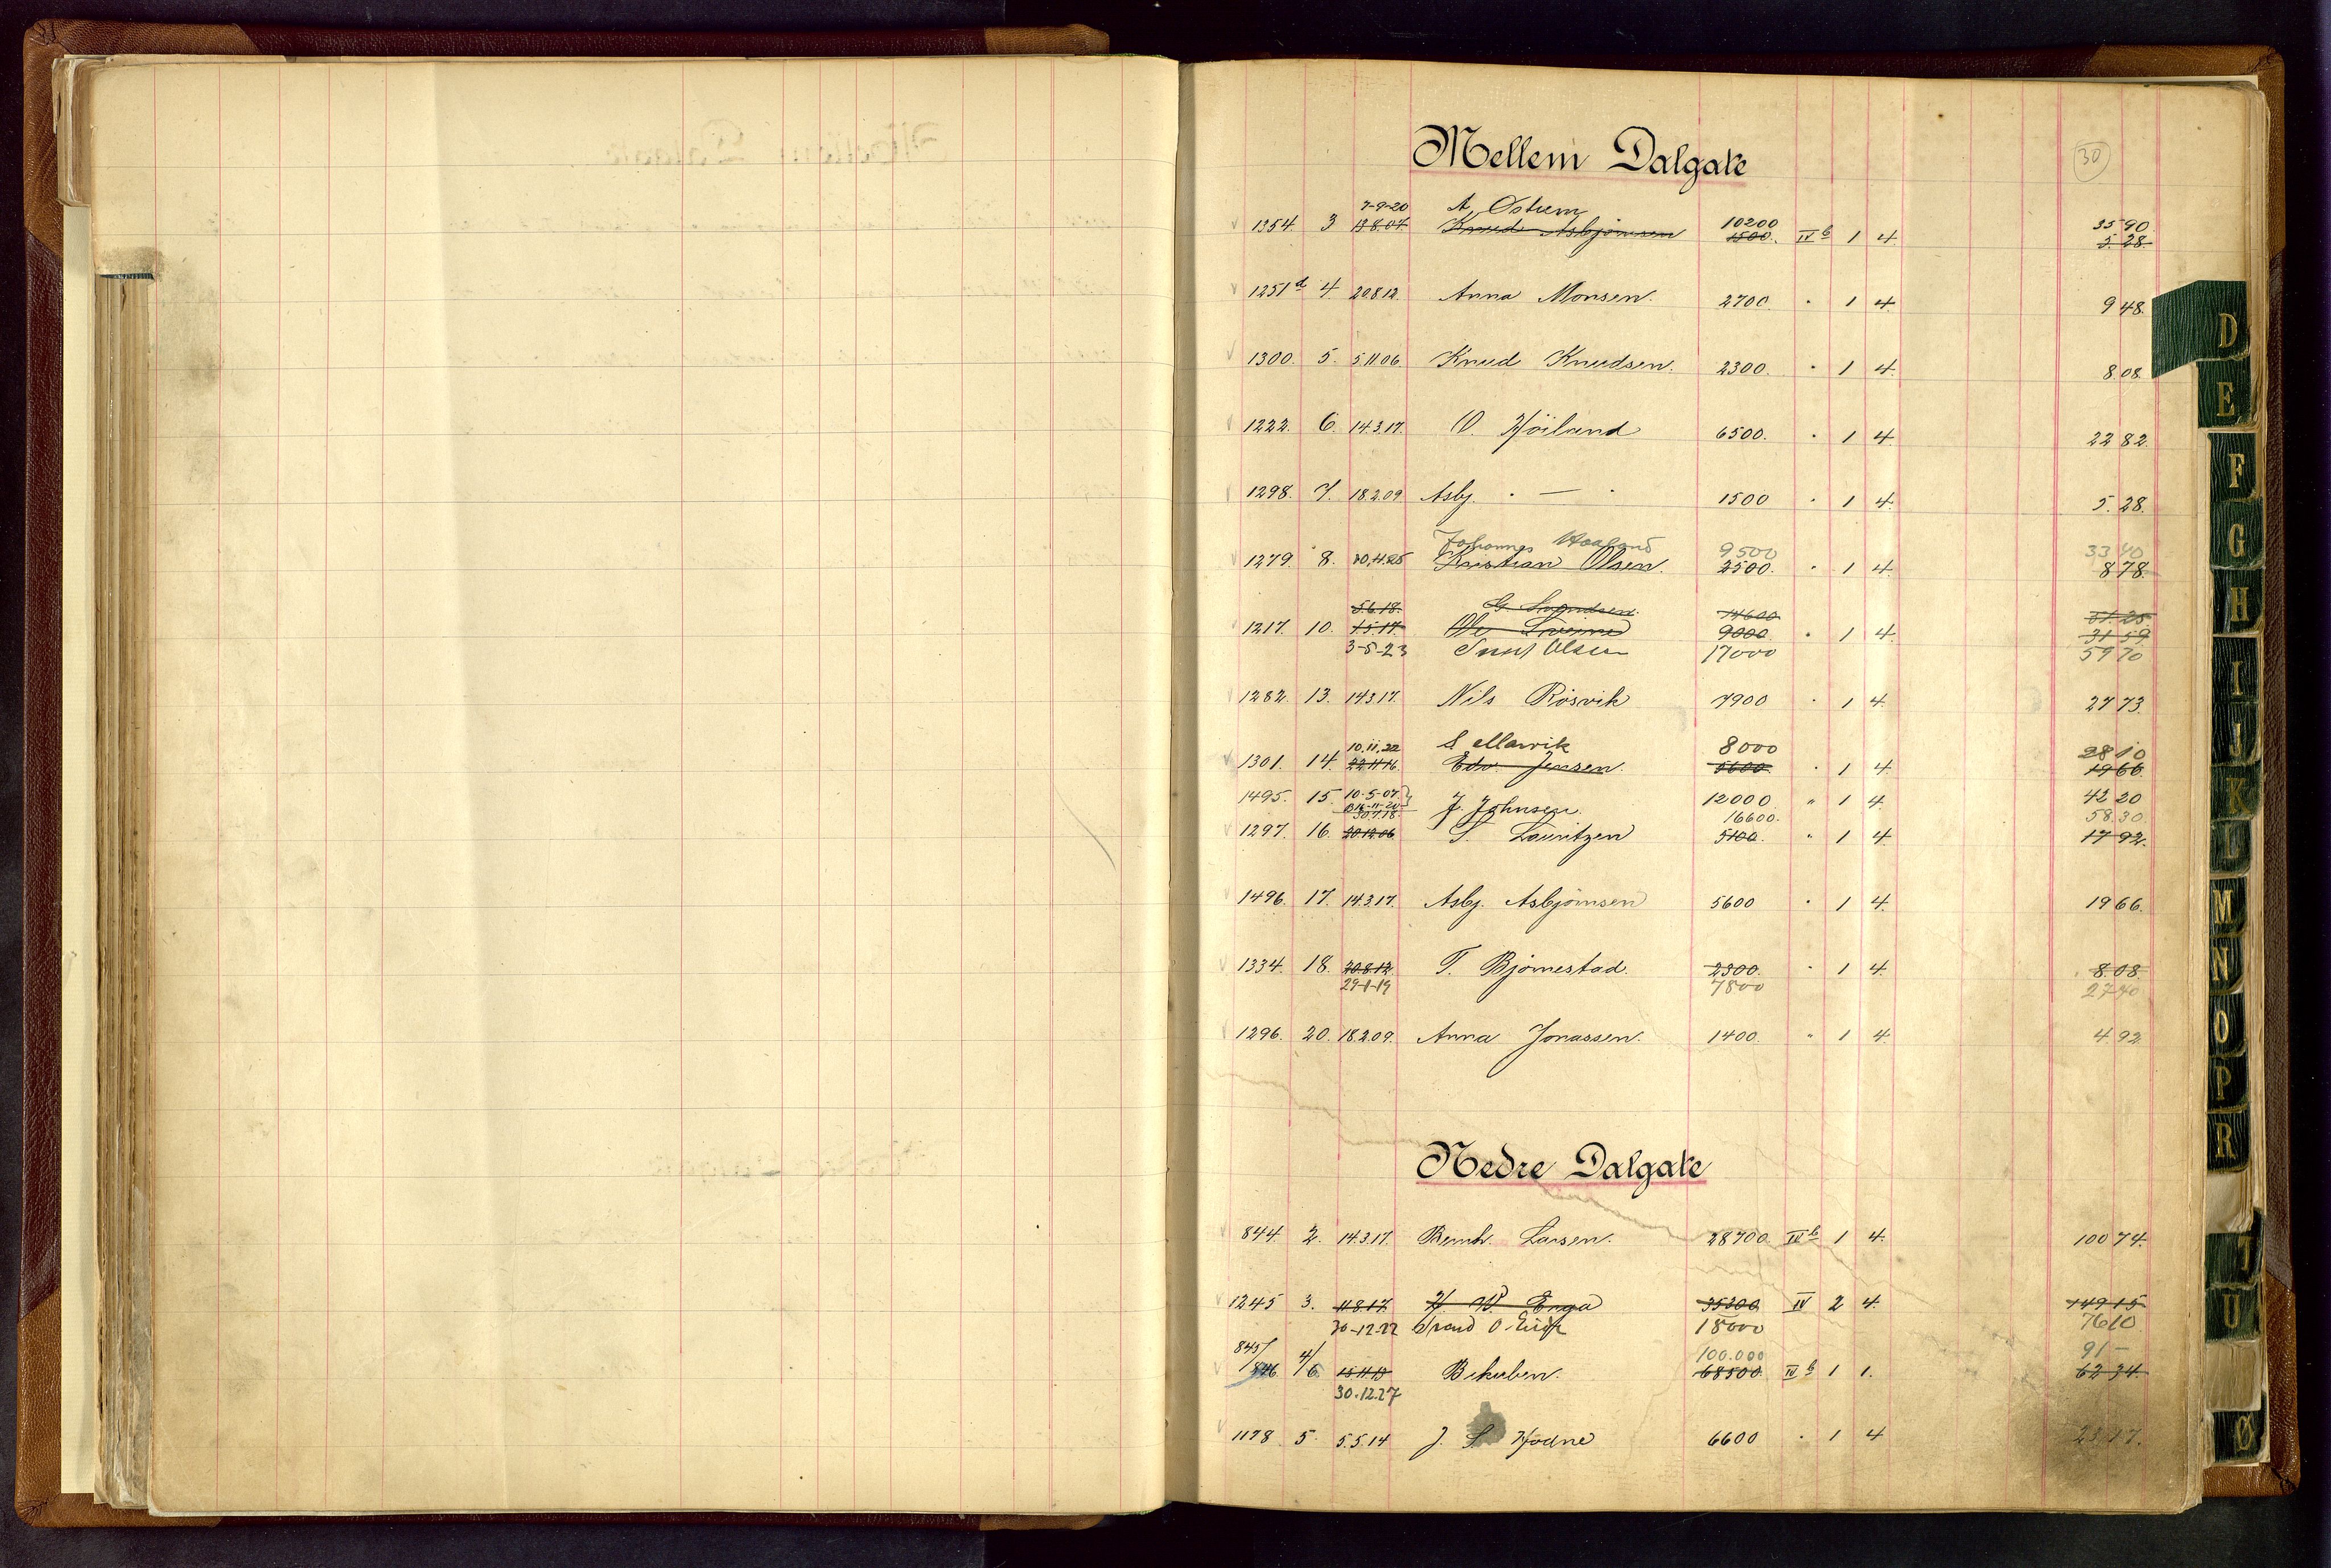 Mellem Dalgate
30
7-9-20 A. Ostrem 10200 35 90
1354 3 13.8.04 Knud Asbjörnsen 1500. IV b 1 4 5.28.
1251 d 4 20.8.12. Anna Monsen. 2700. " 1 4. 9 48.
1300. 5. 5.11.06. Knud Knudsen. 2300. " 1 4. 8.08.
1222. 6. 14.3.17. O. Höiland 6500. " 1 4 22 82.
1298. 7. 18.2.09. Asbj. " — " 1500 " 1 4. 5.28.
Johannes Haaland 9500 33 40
1279. 8. Kristian Olsen. 2500. " 1 4. 8 78.
5.6.18. G. 14600 51.25
1217. 10. 1.5.17. Ole 9000 " 1 4. 31 59
3-5-23 Olsen 17000 59 70
1282. 13. 14.3.17. Nils Rösvik 7900 " 1 4. 27 73.
10.11.22 8000 28 10
1301. 14. 22.11.16. Edv. Jensen. 5600. " 1 4. 19 66.
1495. 15. 10-5-07. J. Johnsen. 12000 " 1 4. 42 20
16-11-20
30.7.18. 16600. 58.30.
1297. 16. 20.12.06 S. Lauritzen 5100. " 1 4. 17 92.
1496. 17. 14.3.17. Asbj. Asbjörnsen 5600 " 1 4. 19 66.
1334. 18. 20.8.12. T. Björnestad. 2300. " 1 4. 8.08.
29-1-19 7800 27 40
1296. 20. 18.2.09. Anna Jonassen. 1400. " 1 4. 4 92
Nedre Dalgate
844. 2. 14.3.17. Bernh. Larsen. 28700. IV b 1 4. 100 74.
1245 3. 11.8.17. H. W. Enga 35300. IV 2 4. 149 15
30-12-22 O. 18000 76 10
845/ 4/ 100.000 91 –
846 6 15.11.13 Bikuben. 68500. IV b 1 1. 62 34.
30.12.27
1178. 5. 5.5.14 J. S. Hodne 6600 " 1 4 23 17.
D
E
F
G
H
I
J
K
L
M
N
O
P
R
T
U
Ø